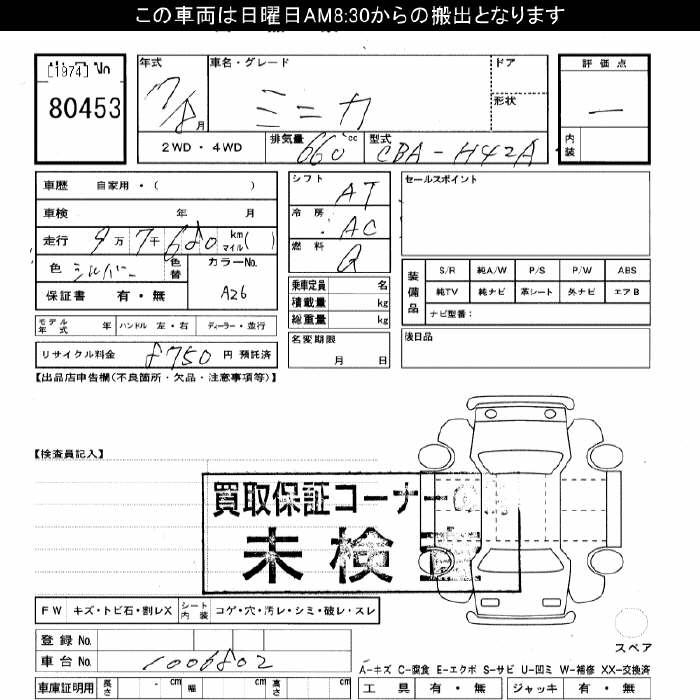 この車両は日曜日AM8:30からの搬出となります
[1974] No
80453
年式 車名・グレード ドア 評価点
ミニカ 形状 —
月 内装
2WD・4WD 排気量 660 cc 型式 CBA-H42A
車歴 自家用・( ) シフト AT セールスポイント
車検 年 月 冷房 AC
走行 9万7千680 km マイル ( ) 燃料 G
色 シルバー 色替 カラーNo. A26
保証書 有・無
乗車定員 名
積載量 kg
総重量 kg
装備品 S/R 純A/W P/S P/W ABS
純TV 純ナビ 革シート 外ナビ エアB
ナビ型番:
モデル年式 年 ハンドル 左・右 ディーラー・並行
名変期限 月 日
後日品
リサイクル料金 8750 円 預託済
【出品店申告欄(不良箇所・欠品・注意事項等)】
【検査員記入】
買取保証コーナー
未検
FW キズ・トビ石・割レX シート内装 コゲ・穴・汚レ・シミ・破レ・スレ
登録No.
車台No. 1006802
スペア
A-キズ C-腐食 E-エクボ S-サビ U-凹ミ W-補修 XX-交換済
車庫証明用 長さ cm 幅 cm 高さ cm
工具 有・無 ジャッキ 有・無